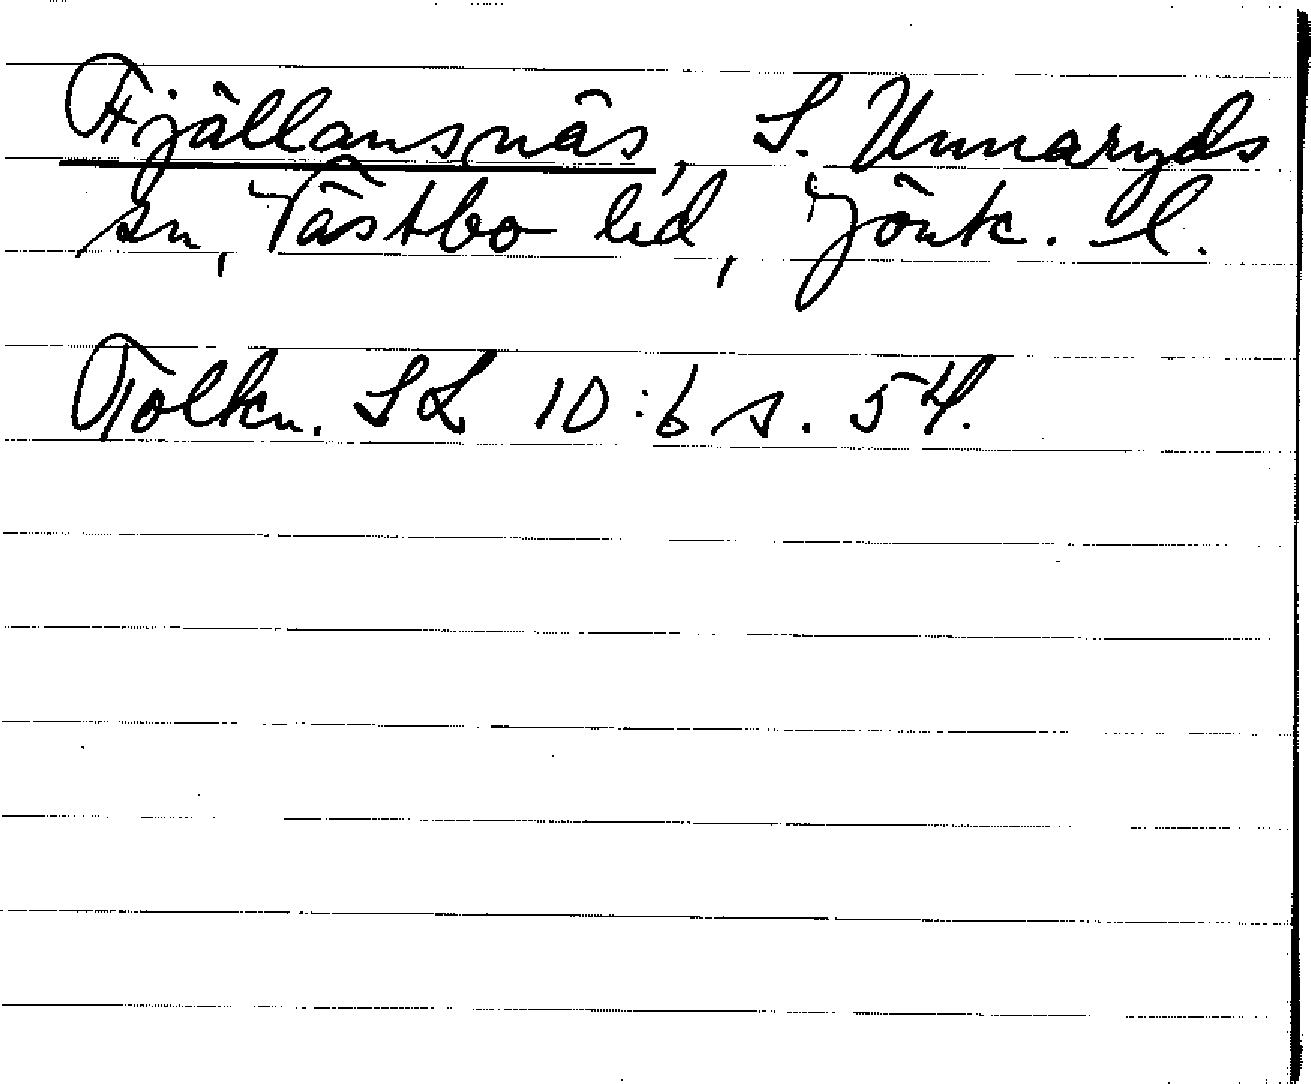 Fjällansnäs, S. Unnaryds
sn, Västbo hd, Jönk. l.
Tolkn. SL 10:6 s. 54.